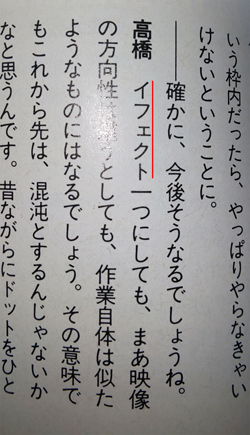 いう枠内だったら、やっぱりやらなきゃい
けないということに。
――確かに、今後そうなるでしょうね。
高橋 イフェクト一つにしても、まあ映像
の方向性は うとしても、作業自体は似た
ようなものにはなるでしょう。その意味で
もこれから先は、混沌とするんじゃないか
なと思うんです。昔ながらにドットをひと